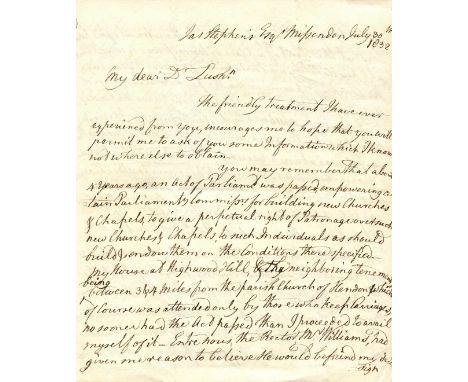 Jas Stephen's Esqr Missenden July 30th
1832
My dear Dr Lushn
The friendly treatment I have ever
experienced from you, encourages me to hope that you will
permit me to ask of you some Information which I know
not where else to obtain.
you may remember that about
4 years ago, an act of Parliamt was passed empowering cer
tain Parliaments Commissrs for building new Churches
& Chapels, to give a perpetual right of Patronage over such
new Churches & Chapels, to such Individuals as should
build & endow them on the Conditions there specified—
My House at Highwood Hill, & the neighboring tenemts
being
between 3 & 4 miles from the parish Church of Hendon, which
of course was attended only by those who keep Carriages,
no sooner had the Act passed than I proceeded to avail
myself of it— Entre nous, the Rector Mr Williams, had
given me reason to believe He would befriend my de
sign